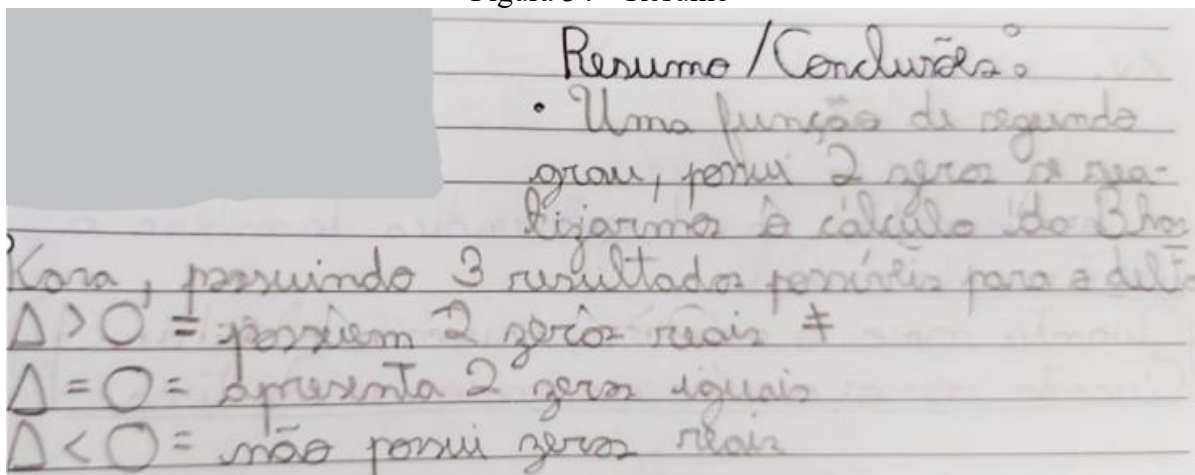 Resumo / Conclusões:
• Uma função de segundo
grau, possui 2 zeros se rea-
lizarmos o cálculo do Bhas
Kara, possuindo 3 resultados possíveis para o delta
Δ > 0 = possuem 2 zeros reais ≠
Δ = 0 = apresenta 2 zeros iguais
Δ < 0 = não possui zeros reais